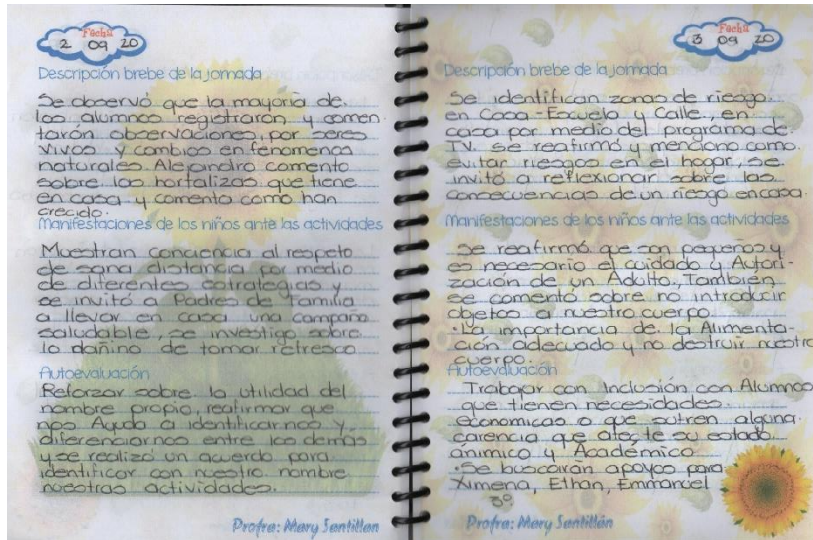 Fecha
2 09 20
Descripción brebe de la jornada
Se observó que la mayoria de
los alumnos registrarón, y comen
tarón observaciones, por seres
vivos y cambios en fenomenos
naturales Alejandro comento
sobre las hortalizas que tiene
en casa y comento como han
crecido.
Manifestaciones de los niños ante las actividades
Muestran conciencia al respeto
de sana distancia por medio
de diferentes estrategias y
se invitó a Padres de Familia
a llevar en casa una campaña
saludable, se investigo sobre
lo dañino de tomar refresco
Autoevaluación
Reforzar sobre la utilidad del
nombre propio, reafirmar que
nos Ayuda a identificarnos y
diferenciarnos entre los demás
y se realizó un acuerdo para
identificar con nuestro nombre
nuestras actividades.
Profra: Mary Santillan
Fecha
3 09 20
Descripción brebe de la jornada
Se identifican zonas de riesgo
en Casa-Escuela y Calle, en
casa por medio del programa de
TV. se reafirmó y menciono como
evitar riesgos en el hogar, se
invitó a reflexionar sobre las
consecuencias de un riesgo en casa.
Manifestaciones de los niños ante las actividades
Se reafirmó que son pequeños y
es necesario el cuidado o Autori-
zación de un Adulto, También
se comentó sobre no introducir
objetos a nuestro cuerpo
•La importancia de la Alimenta-
ción adecuada y no destruir nuestro
cuerpo.
Autoevaluación
Trabajar con Inclusión con Alumnos
que tienen necesidades
economicas o que sufren alguna
carencia que afecte su estado
ánimico y Académico
•Se buscarán apoyos para
Ximena, Ethan, Emmanuel
3º
Profra: Mary Santillán